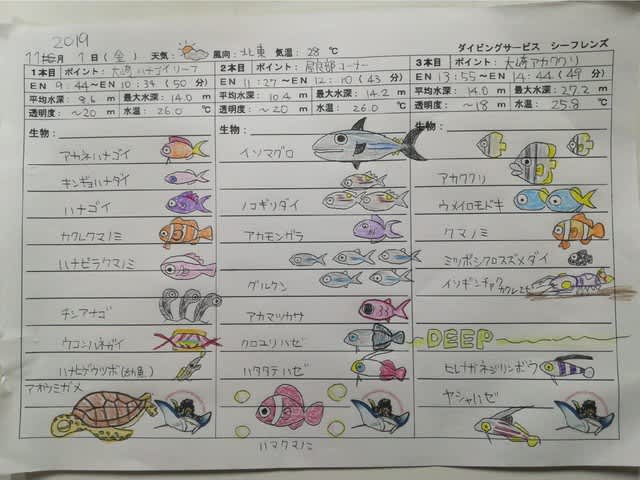 2019
11年月 1日(金) 天気: 風向: 北東 気温: 28 ℃
ダイビングサービス シーフレンズ
1本目 ポイント: 大崎 ハナゴイリーフ
EN 9:44~EN 10:34 (50分)
平均水深: 8.6 m 最大水深: 14.0 m
透明度: ~20 m 水温: 26.0 ℃
生物:
アカネハナゴイ
キンギョハナダイ
ハナゴイ
カクレクマノミ
ハナビラクマノミ
チンアナゴ
ウコンハネガイ
ハナヒゲウツボ(幼魚)
アオウミガメ
2本目 ポイント: 屋良部コーナー
EN 11:27~EN 12:10 (43分)
平均水深: 10.4 m 最大水深: 14.2 m
透明度: ~20 m 水温: 26.0 ℃
生物:
イソマグロ
ノコギリダイ
アカモンガラ
グルクン
アカマツカサ
クロユリハゼ
ハタタテハゼ
ハマクマノミ
3本目 ポイント: 大崎アカククリ
EN 13:55~EN 14:44 (49分)
平均水深: 14.0 m 最大水深: 27.2 m
透明度: ~18 m 水温: 25.8 ℃
生物:
アカククリ
ウメイロモドキ
クマノミ
ミツボシクロスズメダイ
イソギンチャク
カクレエビ
DEEP
ヒレナガネジリンボウ
ヤシャハゼ